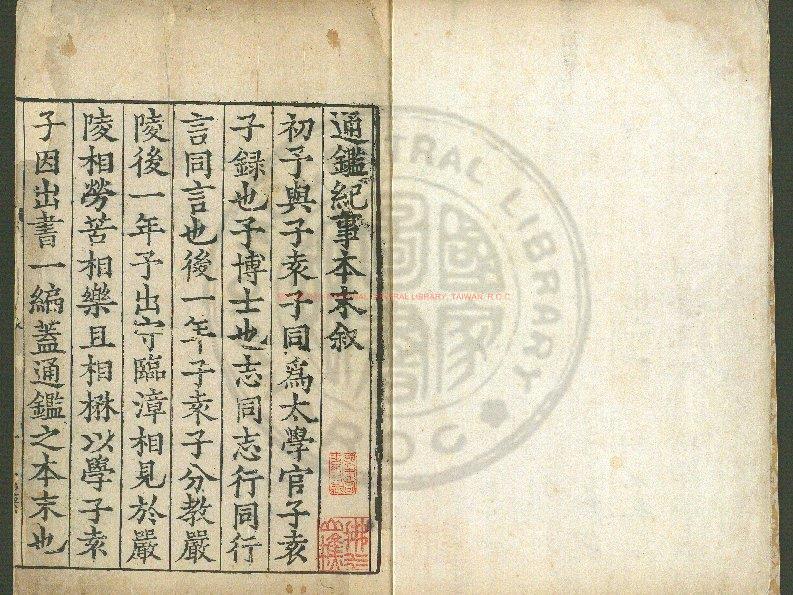 通鑑紀事本末叙
初予與子袁子同爲太學官子袁
子録也予博士也志同志行同行
言同言也後一年子袁子分教嚴
陵後一年予出守臨漳相見於嚴
陵相勞苦相樂且相楙以學子袁
子因出書一編蓋通鑑之本末也
CENTRAL LIBRARY, TAIWAN, R.O.C
TRAL LIBRARY
ROC